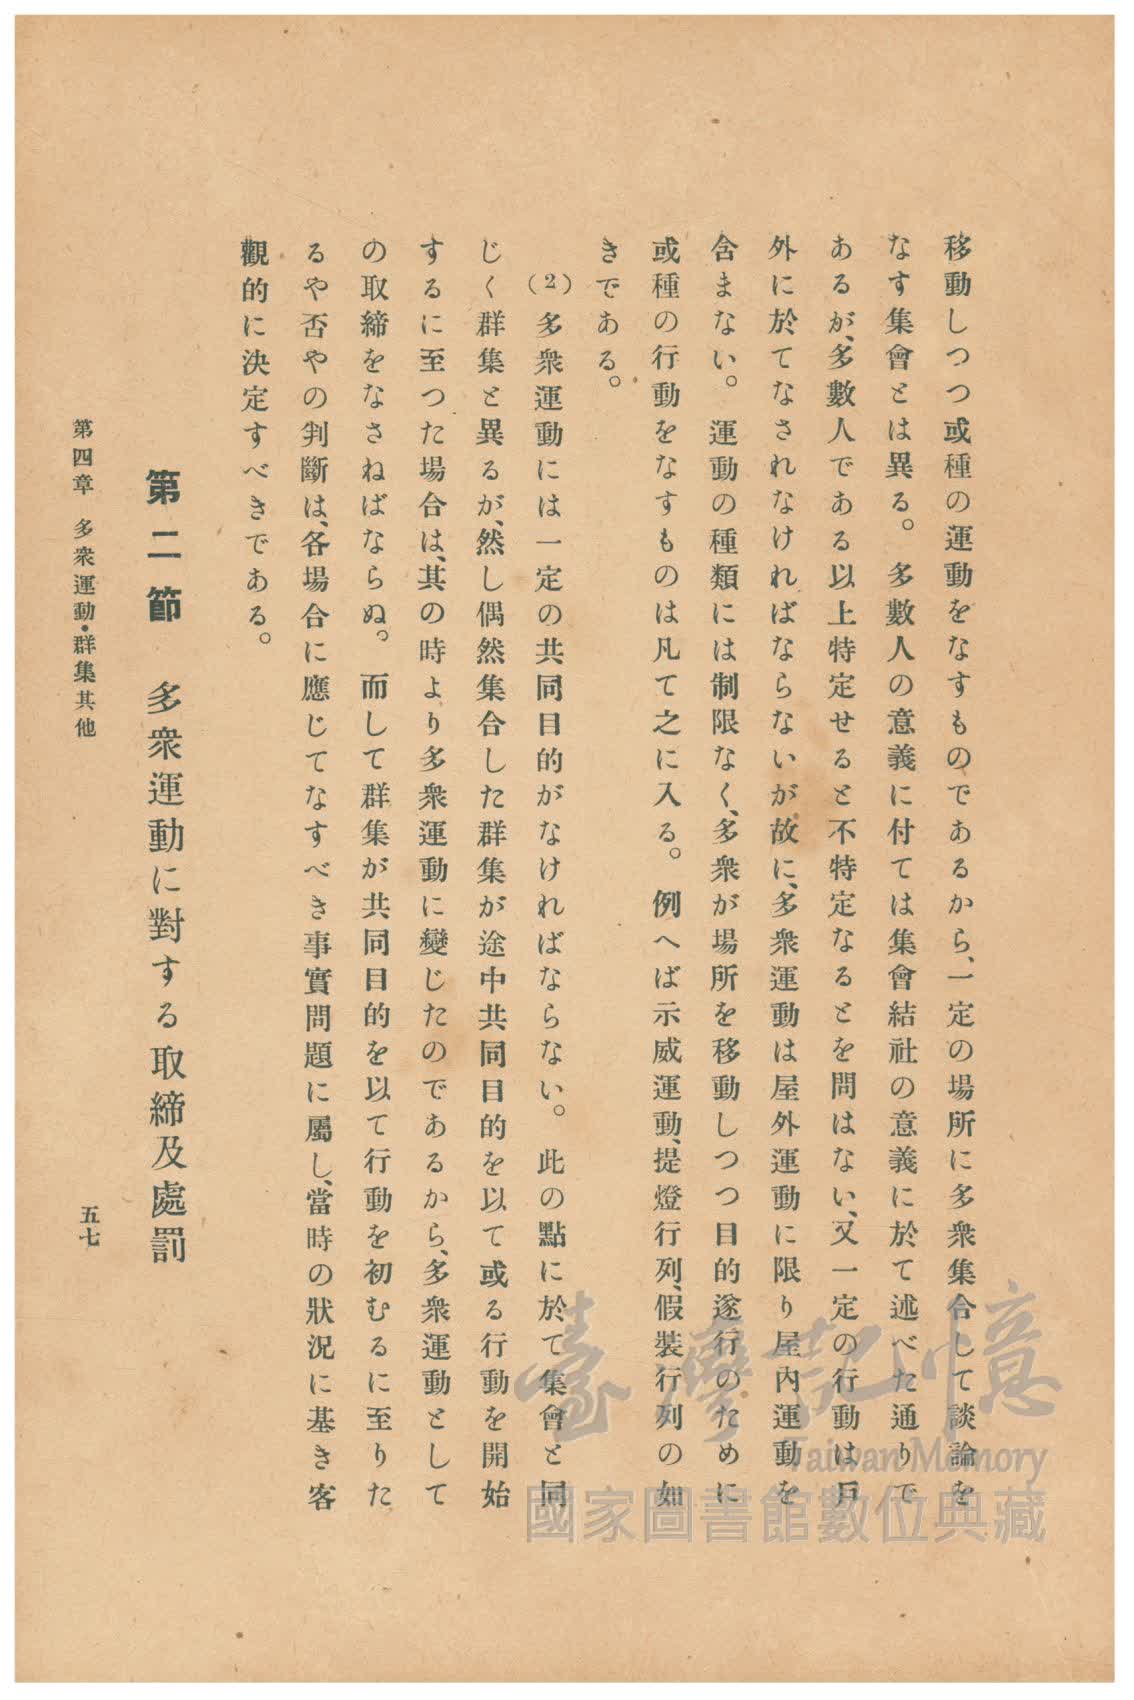 移動しつつ或種の運動をなすものであるから、一定の場所に多衆集合して談論を
なす集會とは異る。多數人の意義に付ては集會結社の意義に於て述べた通りで
あるが、多數人である以上特定せると不特定なるとを問はない、又一定の行動は戶
外に於てなされなければならないが故に、多衆運動は屋外運動に限り屋內運動を
含まない。運動の種類には制限なく、多衆が場所を移動しつつ目的遂行のために
或種の行動をなすものは凡て之に入る。例へば示威運動、提燈行列、假裝行列の如
きである。
(2) 多衆運動には一定の共同目的がなければならない。此の點に於て集會と同
じく群集と異るが、然し偶然集合した群集が途中共同目的を以て或る行動を開始
するに至つた場合は、其の時より多衆運動に變じたのであるから、多衆運動として
の取締をなさねばならぬ。而して群集が共同目的を以て行動を初むるに至りた
るや否やの判斷は、各場合に應じてなすべき事實問題に屬し、當時の狀況に基き客
觀的に決定すべきである。
第二節 多衆運動に對する取締及處罰
第四章 多衆運動・群集其他
五七
臺灣記憶
Taiwan Memory
國家圖書館數位典藏